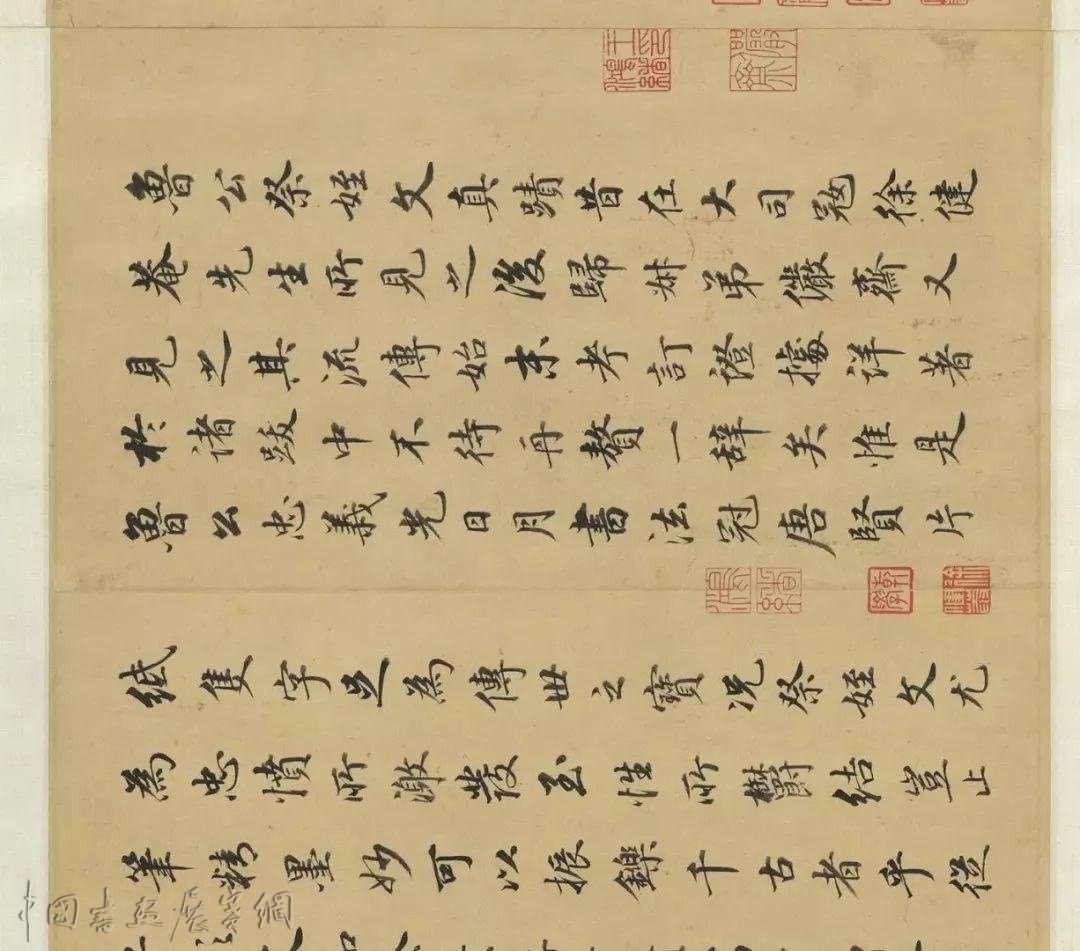 魯公祭姪文真蹟昔在大司寇徐健
菴先生所見之後歸叔弟儼齋又
見之其流傳始末考訂證據詳著
於諸跋中不待再贅一辭矣惟是
魯公忠義光日月書法冠唐賢片
紙隻字足為傳世之寶況祭姪文尤
為忠憤所激發至性所鬱結豈止
筆精墨妙可以振鑠千古者乎從